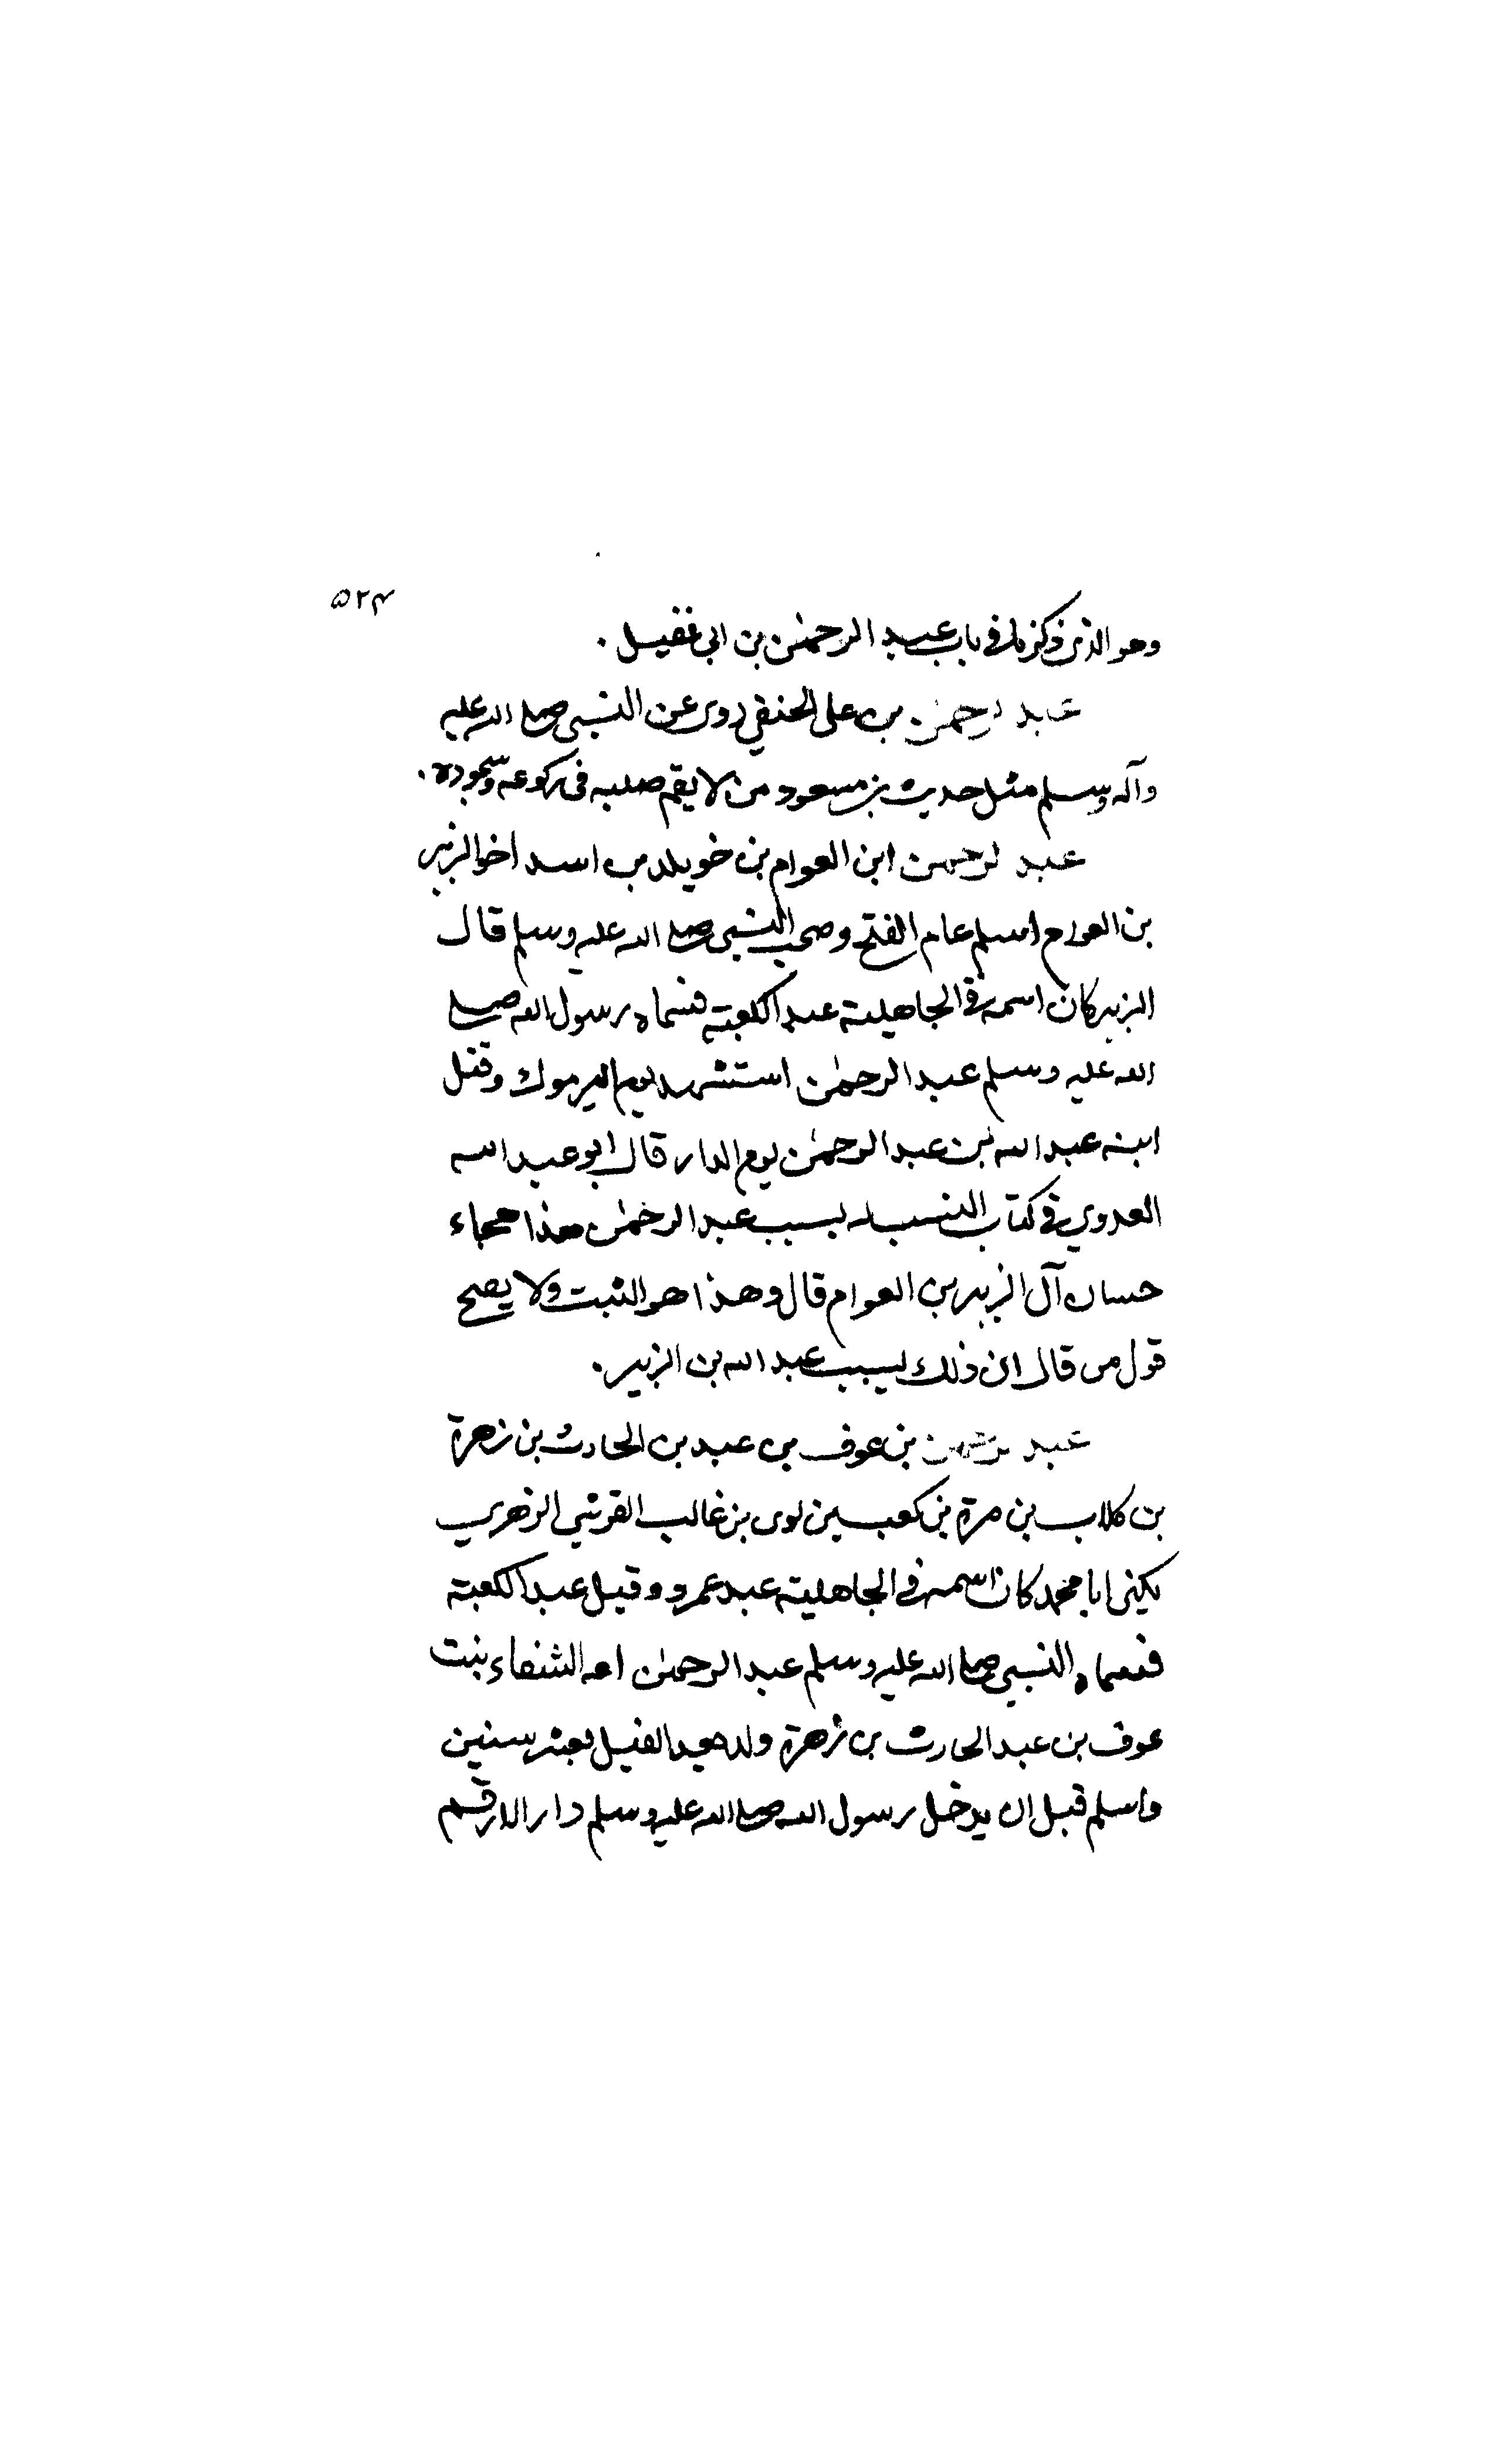 ۵۲۴
وهو الذى ذكرنا في باب عبد الرحمٰن بن ابى عقيل .
عبد الرحمٰن بن على الحنفي روى عن النبى صلى الله عليه
وآله وسلم مثل حديث بن مسعود من لا يقم صلبه فى ركوعه وسجوده .
عبد الرحمن ابن العوام بن خويلد بن اسد اخوالزبير
بن العوام اسلم عام الفتح وصحب النبى صلى الله عليه وسلم قال
الزبير كان اسمه في الجاهلية عبد الكعبة فسماه رسول الله صلى
الله عليه وسلم عبد الرحمٰن استشهد يوم اليرموك وقتل
ابنه عبد الله بن عبد الرحمٰن يوم الدار قال ابو عبد الله
العدوي في كتاب النسب له بسبب عبد الرحمٰن هذا هجاء
حسان آل الزبير بن العوام قال وهذا هو الثبت ولا يصح
قول من قال ان ذلك بسبب عبد الله بن الزبير .
عبد الرحمن بن عوف بن عبد بن الحارث بن زهرة
بن كلاب بن مرة بن كعب بن لوى بن غالب القرشي الزهري
يكنى ابا محمد كان اسمه في الجاهلية عبد عمرو وقيل عبد الكعبة
فسماه النبي صلى الله عليه وسلم عبد الرحمٰن امه الشفاء بنت
عوف بن عبد الحارث بن زهرة ولد بعد الفيل بعشر سنين
واسلم قبل ان يدخل رسول الله صلى الله عليه وسلم دار الارقم